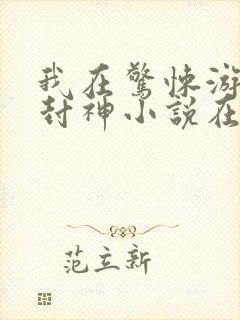 我在驚悚游
封神小說在
范立新